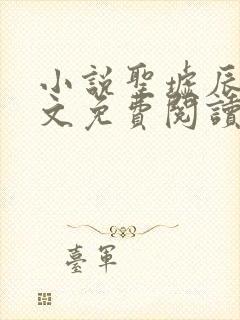 小說聖墟辰
文免費閱讀
臺軍